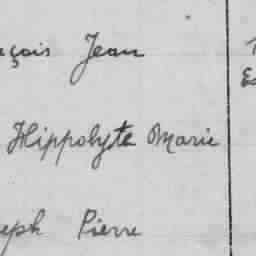 çois Jean
Hippolyte Marie
seph Pierre